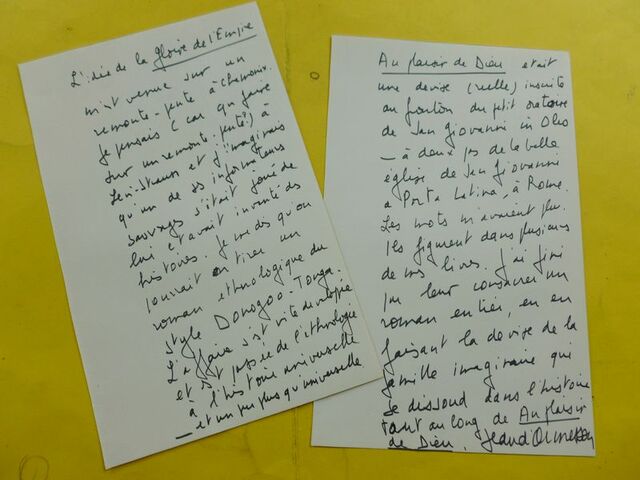 L'idée de la Gloire de l'Empire
m'est venue sur un
remonte-pente à Chamonix.
Je pensais (car que faire
sur un remonte-pente?) à
Lévi-Strauss et j'imaginais
qu'un de ses informateurs
sauvages s'était joué de
lui et avait inventé des
histoires. Je me dis qu'on
pourrait en tirer un
roman ethnologique du
style Donogoo-Tonga.
L'affaire s'est vite développée
et est passée de l'ethnologie
à l'histoire universelle
— et un peu plus qu'universelle
Au plaisir de Dieu était
une devise (réelle) inscrite
au fronton du petit oratoire
de San Giovanni in Oleo
— à deux pas de la belle
église de San Giovanni
a Porta Latina, à Rome.
Les mots m'avaient plu.
Ils figurent dans plusieurs
de mes livres. J'ai fini
par leur consacrer un
roman entier, en en
faisant la devise de la
famille imaginaire qui
se dissout dans l'histoire
tout au long de Au plaisir
de Dieu. Jean d'Ormesson